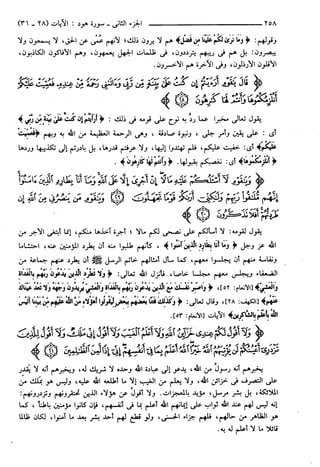 ٢٥٨ الجزء الثاني - سورة هود : الآيات (٢٨ - ٣١)
وقولهم: ﴿ وَمَا نَرَىٰ لَكُمْ عَلَيْنَا مِن فَضْلٍ ﴾ هم لا يرون ذلك؛ لأنهم عُمْي عن الحق، لا يسمعون ولا
يبصرون؛ بل هم في ريبهم يترددون، في ظلمات الجهل يعمهون، وهم الأفاكون الكاذبون،
الأقلون الأرذلون، وفي الآخرة هم الأخسرون.
﴿ قَالَ يَٰقَوْمِ أَرَءَيْتُمْ إِن كُنتُ عَلَىٰ بَيِّنَةٍ مِّن رَّبِّي وَءَاتَىٰنِي رَحْمَةً مِّنْ عِندِهِۦ فَعُمِّيَتْ عَلَيْكُمْ
أَنُلْزِمُكُمُوهَا وَأَنتُمْ لَهَا كَٰرِهُونَ ﴾
يقول تعالى مخبرا عما ردَّ به نوح على قومه في ذلك : ﴿ أَرَءَيْتُمْ إِن كُنتُ عَلَىٰ بَيِّنَةٍ مِّن رَّبِّي ﴾
أي : على يقين وأمر جلي ، ونبوة صادقة ، وهي الرحمة العظيمة من الله به وبهم ﴿ فَعُمِّيَتْ
عَلَيْكُمْ ﴾ أي: خفيت عليكم، فلم تهتدوا إليها، ولا عرفتم قدرها، بل بادرتم إلى تكذيبها وردها
﴿ أَنُلْزِمُكُمُوهَا ﴾ أي: نغصبكم بقبولها. ﴿ وَأَنتُمْ لَهَا كَٰرِهُونَ ﴾ .
﴿ وَيَٰقَوْمِ لَا أَسْـَٔلُكُمْ عَلَيْهِ مَالًا إِنْ أَجْرِيَ إِلَّا عَلَى اللَّهِ وَمَا أَنَا۠ بِطَارِدِ الَّذِينَ ءَامَنُوا
إِنَّهُم مُّلَٰقُوا رَبِّهِمْ وَلَٰكِنِّي أَرَىٰكُمْ قَوْمًا تَجْهَلُونَ وَيَٰقَوْمِ مَن يَنصُرُنِي مِنَ اللَّهِ إِن
طَرَدتُّهُمْ أَفَلَا تَذَكَّرُونَ ﴾
يقول لقومه: لا أسألكم على نصحي لكم مالا ؛ أجرة آخذها منكم، إنما أبتغي الأجر من
الله عز وجل ﴿ وَمَا أَنَا۠ بِطَارِدِ الَّذِينَ ءَامَنُوا ﴾ ، كأنهم طلبوا منه أن يطرد المؤمنين عنه، احتشاما
ونفاسة منهم أن يجلسوا معهم، كما سأل أمثالهم خاتم الرسل ﷺ أن يطرد عنهم جماعة من
الضعفاء ويجلس معهم مجلسا خاصا، فأنزل الله تعالى: ﴿ وَلَا تَطْرُدِ الَّذِينَ يَدْعُونَ رَبَّهُم بِالْغَدَوٰةِ
وَالْعَشِيِّ ﴾ [الأنعام: ٥٢]، ﴿ وَاصْبِرْ نَفْسَكَ مَعَ الَّذِينَ يَدْعُونَ رَبَّهُم بِالْغَدَوٰةِ وَالْعَشِيِّ يُرِيدُونَ وَجْهَهُ وَلَا تَعْدُ عَيْنَاكَ
عَنْهُمْ ﴾ [الكهف: ٢٨]، وقال تعالى: ﴿ وَكَذَٰلِكَ فَتَنَّا بَعْضَهُم بِبَعْضٍ لِّيَقُولُوا أَهَٰؤُلَاءِ مَنَّ اللَّهُ عَلَيْهِم مِّن بَيْنِنَا أَلَيْسَ
اللَّهُ بِأَعْلَمَ بِالشَّٰكِرِينَ ﴾ الآيات [الأنعام: ٥٣].
﴿ وَلَا أَقُولُ لَكُمْ عِندِي خَزَائِنُ اللَّهِ وَلَا أَعْلَمُ الْغَيْبَ وَلَا أَقُولُ إِنِّي مَلَكٌ وَلَا أَقُولُ لِلَّذِينَ
تَزْدَرِي أَعْيُنُكُمْ لَن يُؤْتِيَهُمُ اللَّهُ خَيْرًا اللَّهُ أَعْلَمُ بِمَا فِي أَنفُسِهِمْ إِنِّي إِذًا لَّمِنَ الظَّٰلِمِينَ ﴾
يخبرهم أنه رسول من الله، يدعو إلى عبادة الله وحده لا شريك له، ويخبرهم أنه لا يقدر
على التصرف في خزائن الله، ولا يعلم من الغيب إلا ما أطلعه الله عليه، وليس هو بملك من
الملائكة، بل بشر مرسل، مؤيد بالمعجزات. ولا أقول عن هؤلاء الذين تحتقرونهم وتزدرونهم:
إنه ليس لهم عند الله ثواب على إيمانهم الله أعلم بما في أنفسهم، فإن كانوا مؤمنين باطناً ، كما
هو الظاهر من حالهم، فلهم جزاء الحسنى، ولو قطع لهم أحد بشر بعد ما آمنوا، لكان ظالما
قائلا ما لا أعلم له به.